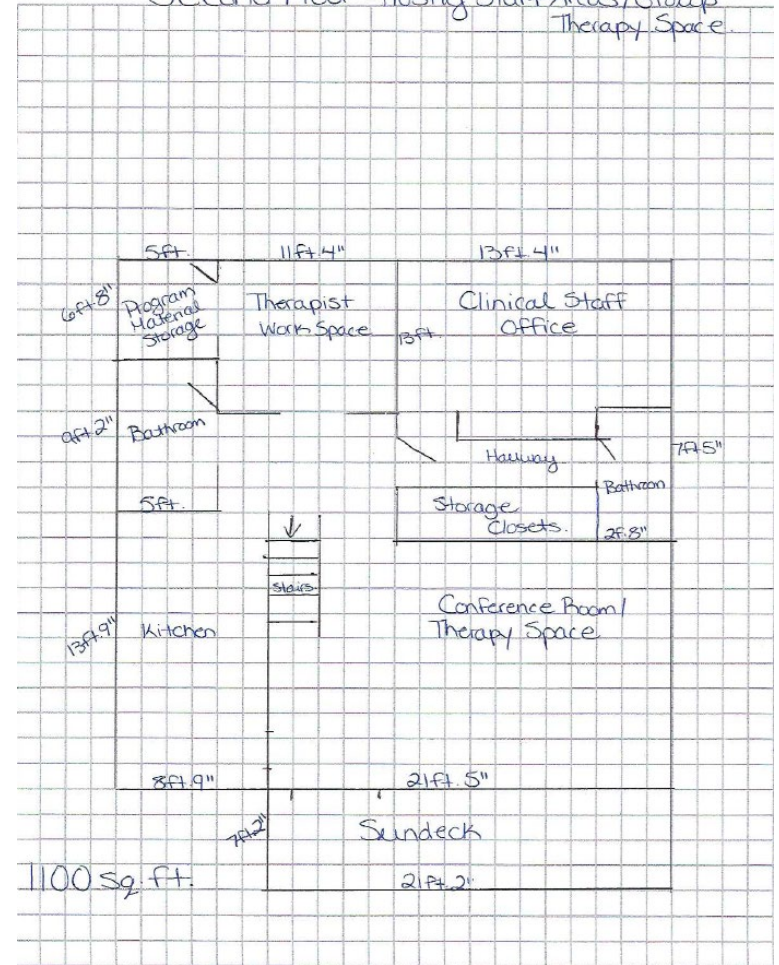 Therapy Space.
5ft.
11ft.4"
13ft.4"
6ft.8"
Program
Material
Storage
Therapist
Work Space
13ft.
Clinical Staff
Office
9ft.2"
Bathroom
Hallway
7ft.5"
5ft.
Storage
Closets.
Bathroom
2f.8"
Stairs
13ft.9"
Kitchen
Conference Room/
Therapy Space
8ft.9"
21ft.5"
7ft.2"
Sundeck
1100 sq.ft.
21ft.2"